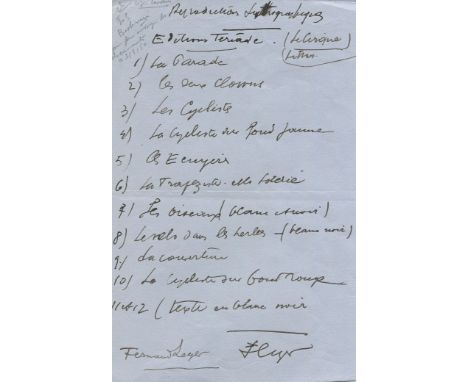 Reproduction Lithographiques
Editions Tériade. (Le Cirque)
Litho
1) La Parade
2) Les deux Clowns
3) Les Cyclistes
4) La Cycliste sur fond jaune
5) Les Ecuyères
6) La Trapéziste
7) Les oiseaux (blanc et noir)
8) dans les herbes (blanc noir)
9) La couverture
10) La Cycliste sur fond rouge
11 et 12 (texte en blanc noir
Fernand Leger FLeger